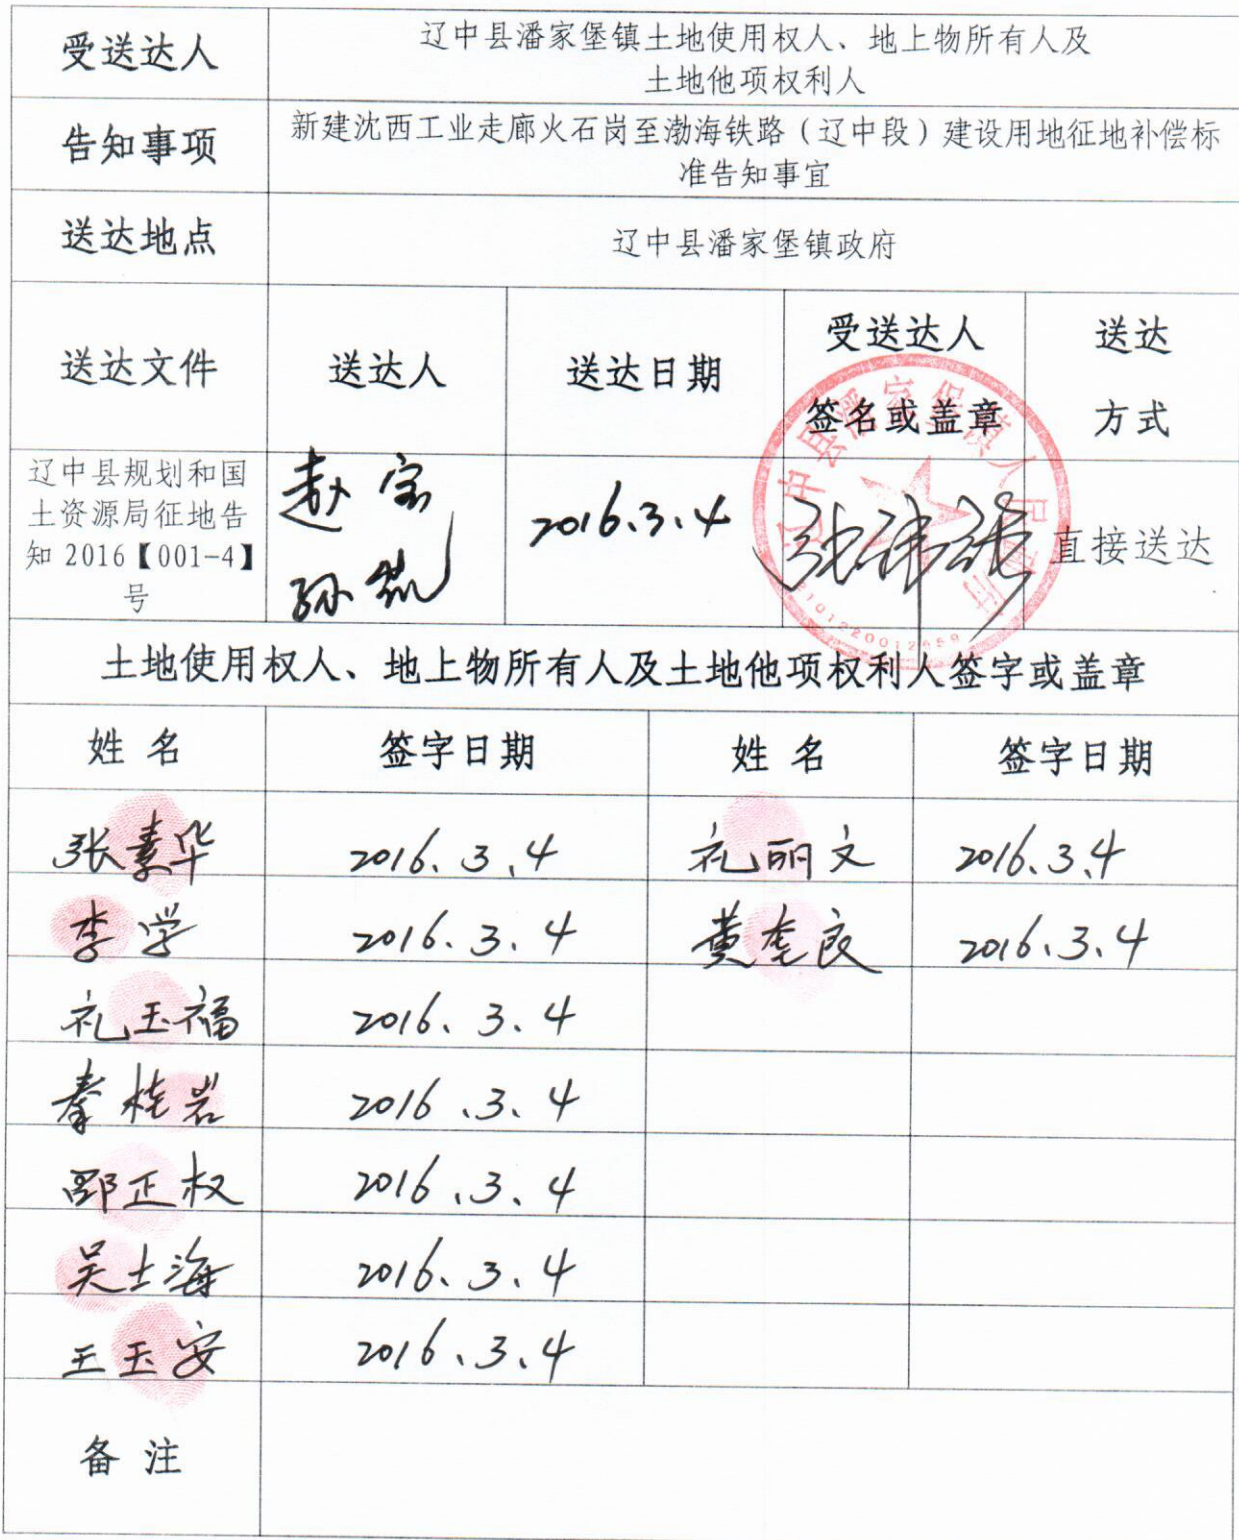 受送达人
辽中县潘家堡镇土地使用权人、地上物所有人及
土地他项权利人
告知事项
新建沈西工业走廊火石岗至渤海铁路（辽中段）建设用地征地补偿标
准告知事宜
送达地点
辽中县潘家堡镇政府
送达文件
送达人
送达日期
受送达人
签名或盖章
送达
方式
辽中县规划和国
土资源局征地告
知 2016【001-4】
号
赵宝
孙凯
2016.3.4
辽中县潘家堡镇人民政府
直接送达
土地使用权人、地上物所有人及土地他项权利人签字或盖章
姓 名
签字日期
姓 名
签字日期
张素华
2016.3.4
礼丽文
2016.3.4
李学
2016.3.4
黄奎良
2016.3.4
礼玉福
2016.3.4
秦桂岩
2016.3.4
正权
2016.3.4
吴士海
2016.3.4
王玉安
2016.3.4
备 注